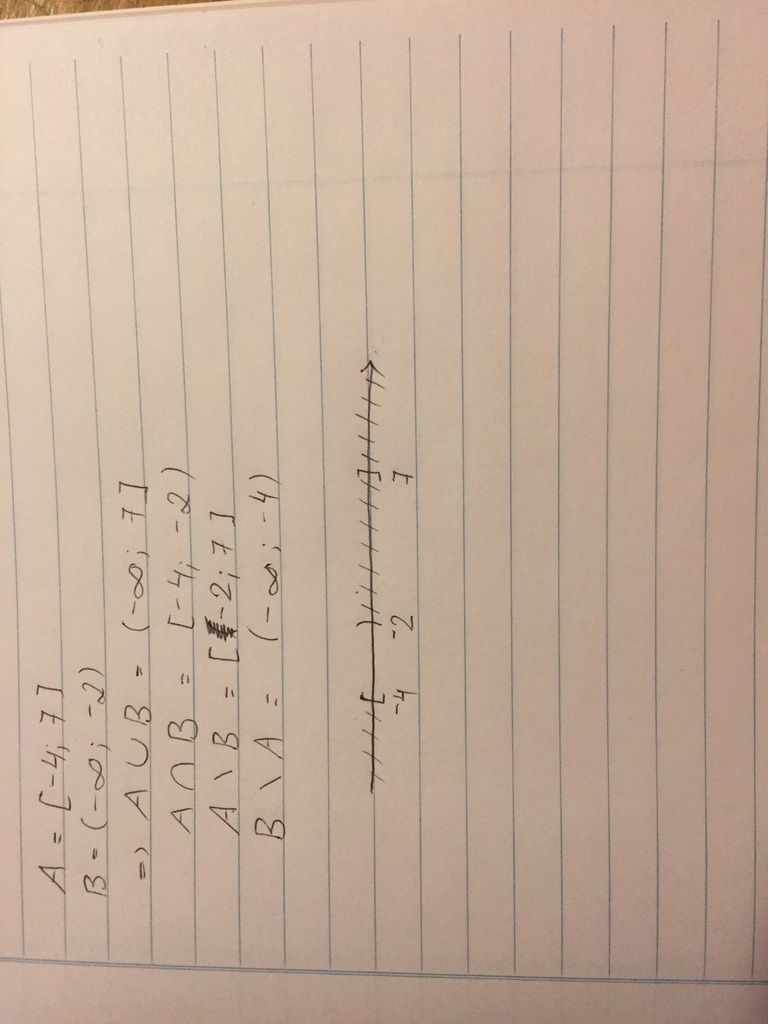 A = [-4; 7]
B = (-∞; -2)
=> A ∪ B = (-∞; 7]
A ∩ B = [-4; -2)
A \ B = [-2; 7]
B \ A = (-∞; -4)
////[ )//////////]///////>
-4 -2 7